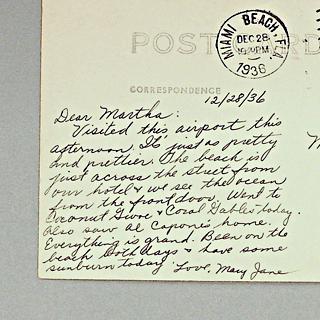 POSTCARD
MIAMI BEACH, FLA.
DEC 28
PM
1936
CORRESPONDENCE
12/28/36
Dear Martha:
Visited this airport this
afternoon. It's just as pretty
and prettier. The beach is
just across the street from
our hotel & we see the ocean
from the front door. Went to
Coconut Grove & Coral Gables today.
Also saw Al Capone's home.
Everything is grand. Been on the
beach both days & have some
sunburn today. Love, Mary Jane